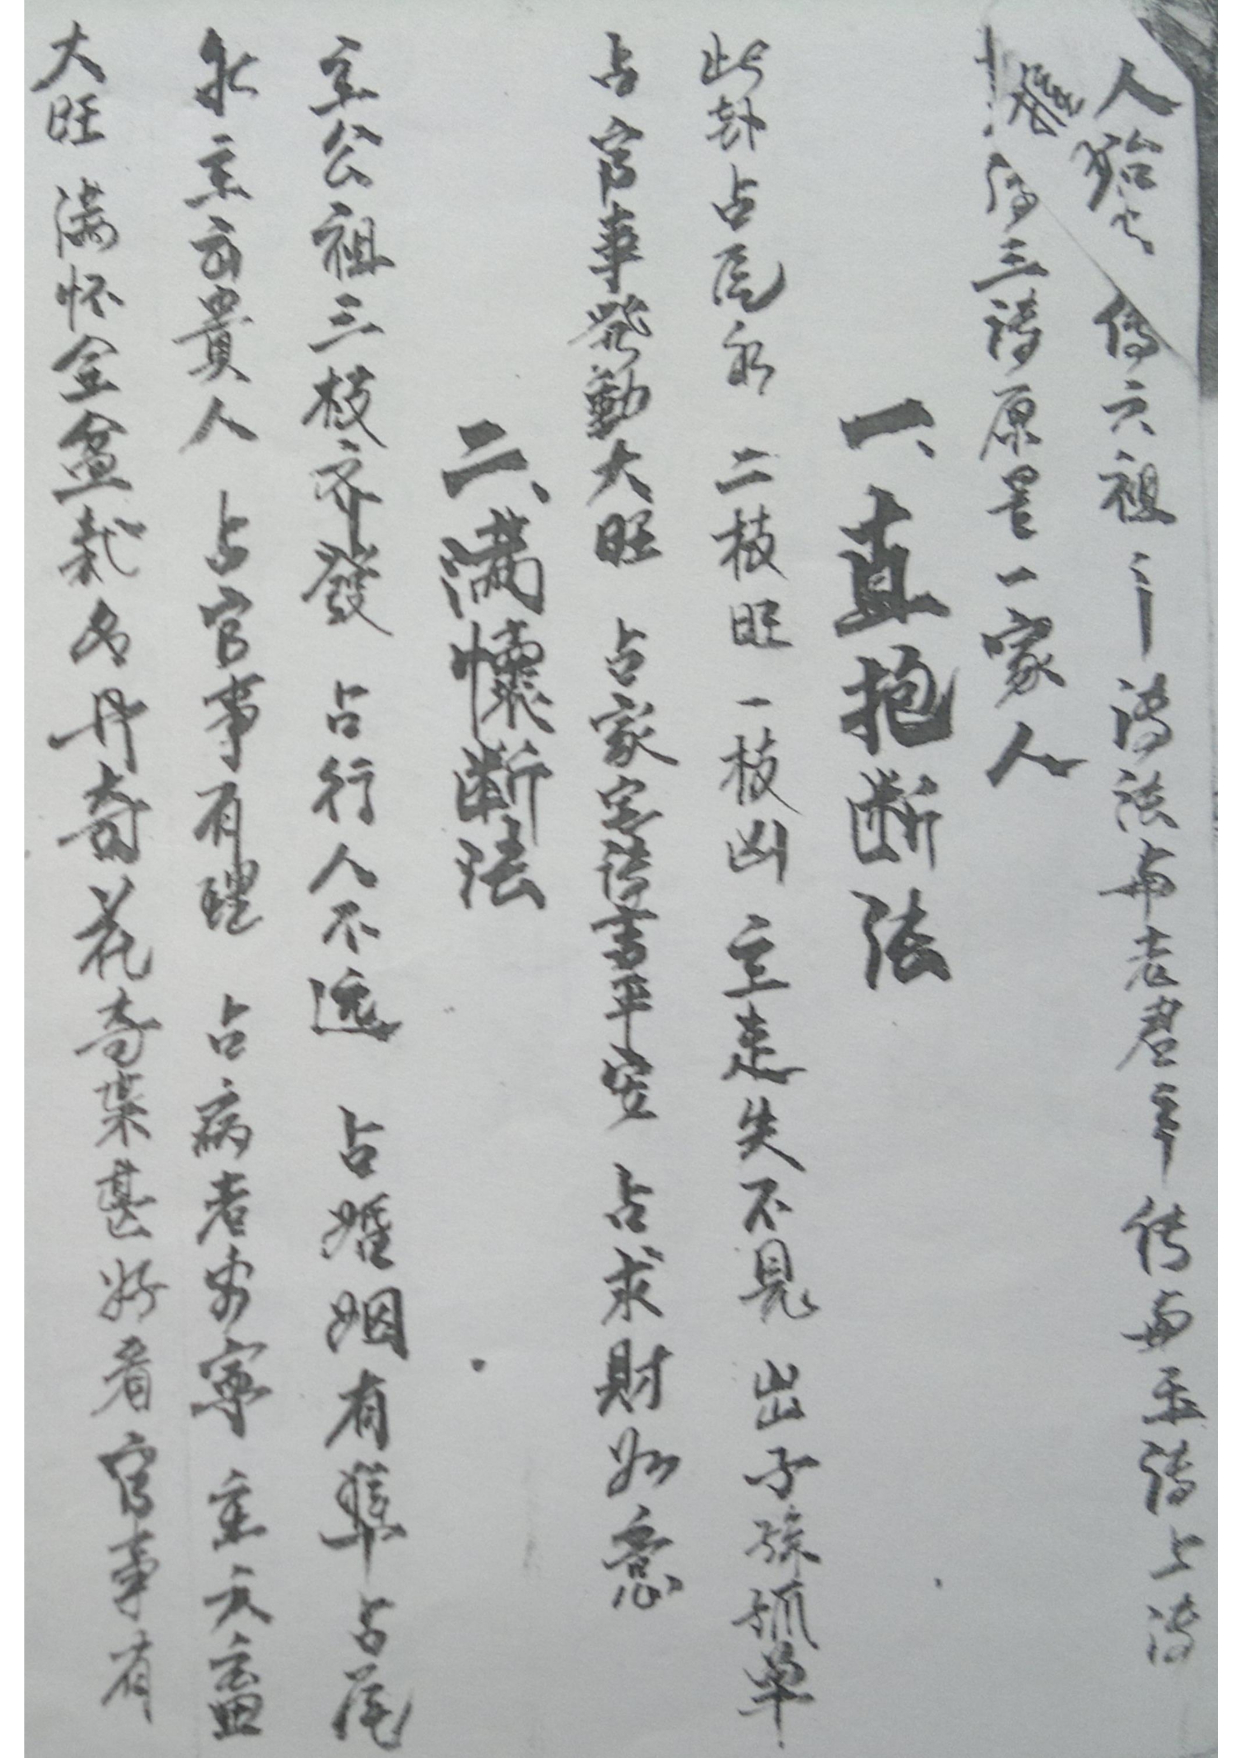 人 传六祖 清法与老君 传与玉清上清
三清原是一家人
一、直抱断法
此卦占尾水 二枝旺 一枝凶 主走失不見 出子孫孤單
占官事發動大旺 占家宅清吉平安 占求財如意
二、满懷断法
主公祖三枝齐發 占行人不远 占婚姻有準 占尾
水主云貴人 占官事有理 占病者安寧 主六畜
大旺 满怀金盆栽名丹奇花奇菓甚好看 官事有